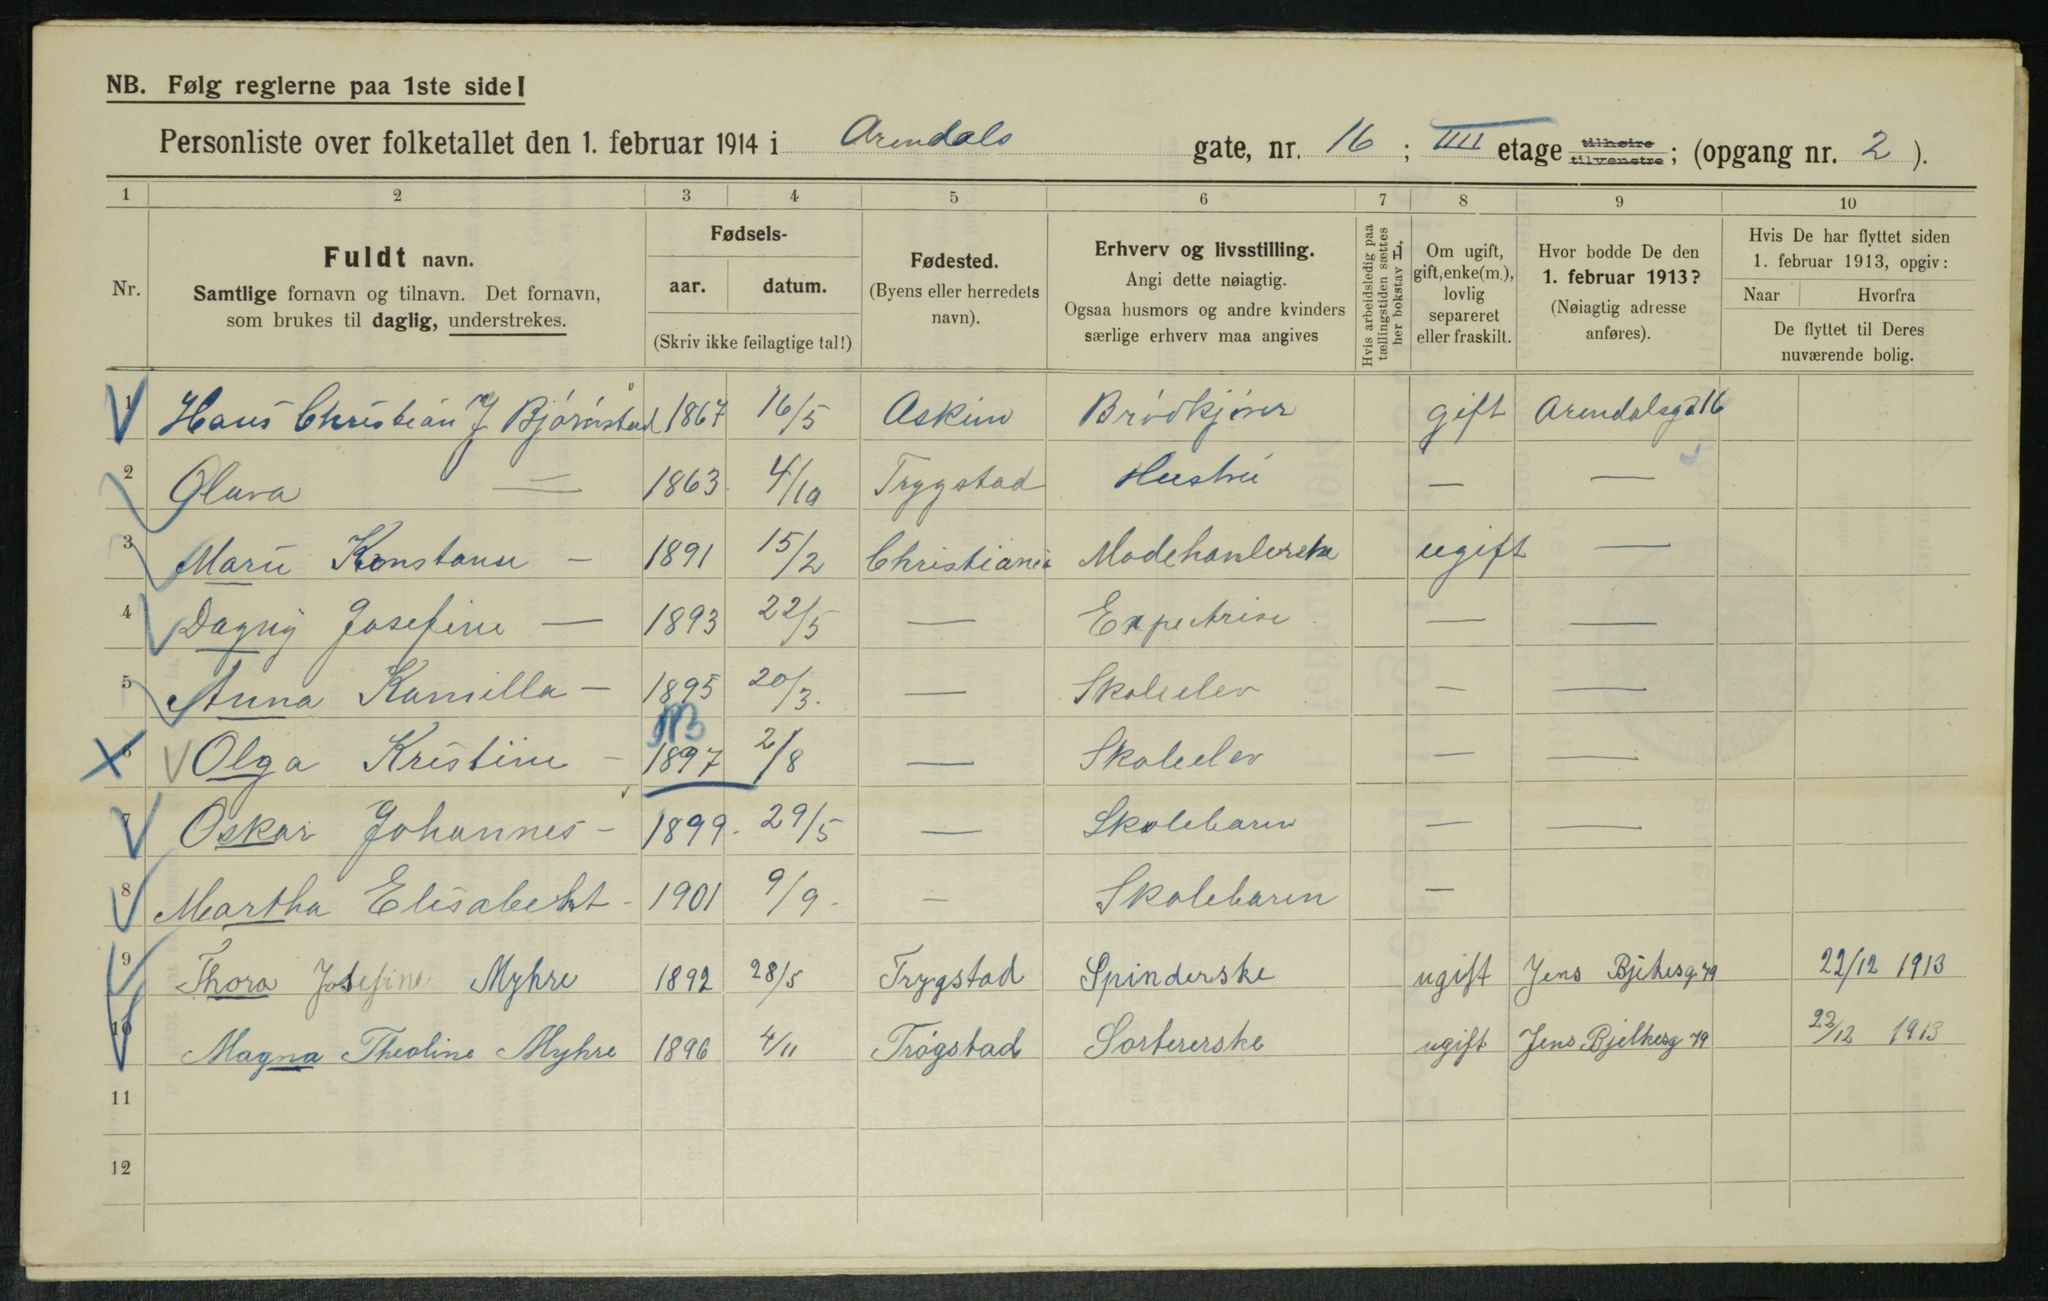 NB. Følg reglerne paa 1ste side!
Personliste over folketallet den 1. februar 1914 i Arendals gate, nr. 16; IIII etage tilhøire tilvenstre; (opgang nr. 2).
1 2 3 4 5 6 7 8 9 10
Nr.
Fuldt navn.
Samtlige fornavn og tilnavn. Det fornavn,
som brukes til daglig, understrekes.
Fødsels-
aar. datum.
(Skriv ikke feilagtige tal!)
Fødested.
(Byens eller herredets
navn).
Erhverv og livsstilling.
Angi dette nøiagtig.
Ogsaa husmors og andre kvinders
særlige erhverv maa angives
Hvis arbeidsledig paa
tællingstiden sættes
her bokstav L.
Om ugift,
gift, enke(m.),
lovlig
separeret
eller fraskilt.
Hvor bodde De den
1. februar 1913?
(Nøiagtig adresse
anføres).
Hvis De har flyttet siden
1. februar 1913, opgiv:
Naar Hvorfra
De flyttet til Deres
nuværende bolig.
1 Hans Christian J Bjørnstad 1867 16/5 Askim Brødkjører gift Arendalsgt 16
2 Olava — 1863 4/10 Trygstad Hustru — —
3 Marie Konstanse — 1891 15/2 Christiania Modehanlerske ugift —
4 Dagny Josefine — 1893 22/5 — Expectrise — —
5 Anna Kamilla — 1895 20/3 — Skoleelev — —
6 Olga Kristine — 1897 2/8 — Skoleelev — —
7 Oskar Johannes — 1899 29/5 — Skolebarn — —
8 Martha Elisabeht — 1901 9/9 — Skolebarn —
9 Thora Josefine Myhre 1892 28/5 Trygstad Spinderske ugift Jens Bjelkesg 79 22/12 1913
10 Magna Theoline Myhre 1896 4/11 Trøgstad Sortererske ugift Jens Bjelkesg 79 22/12 1913
11
12